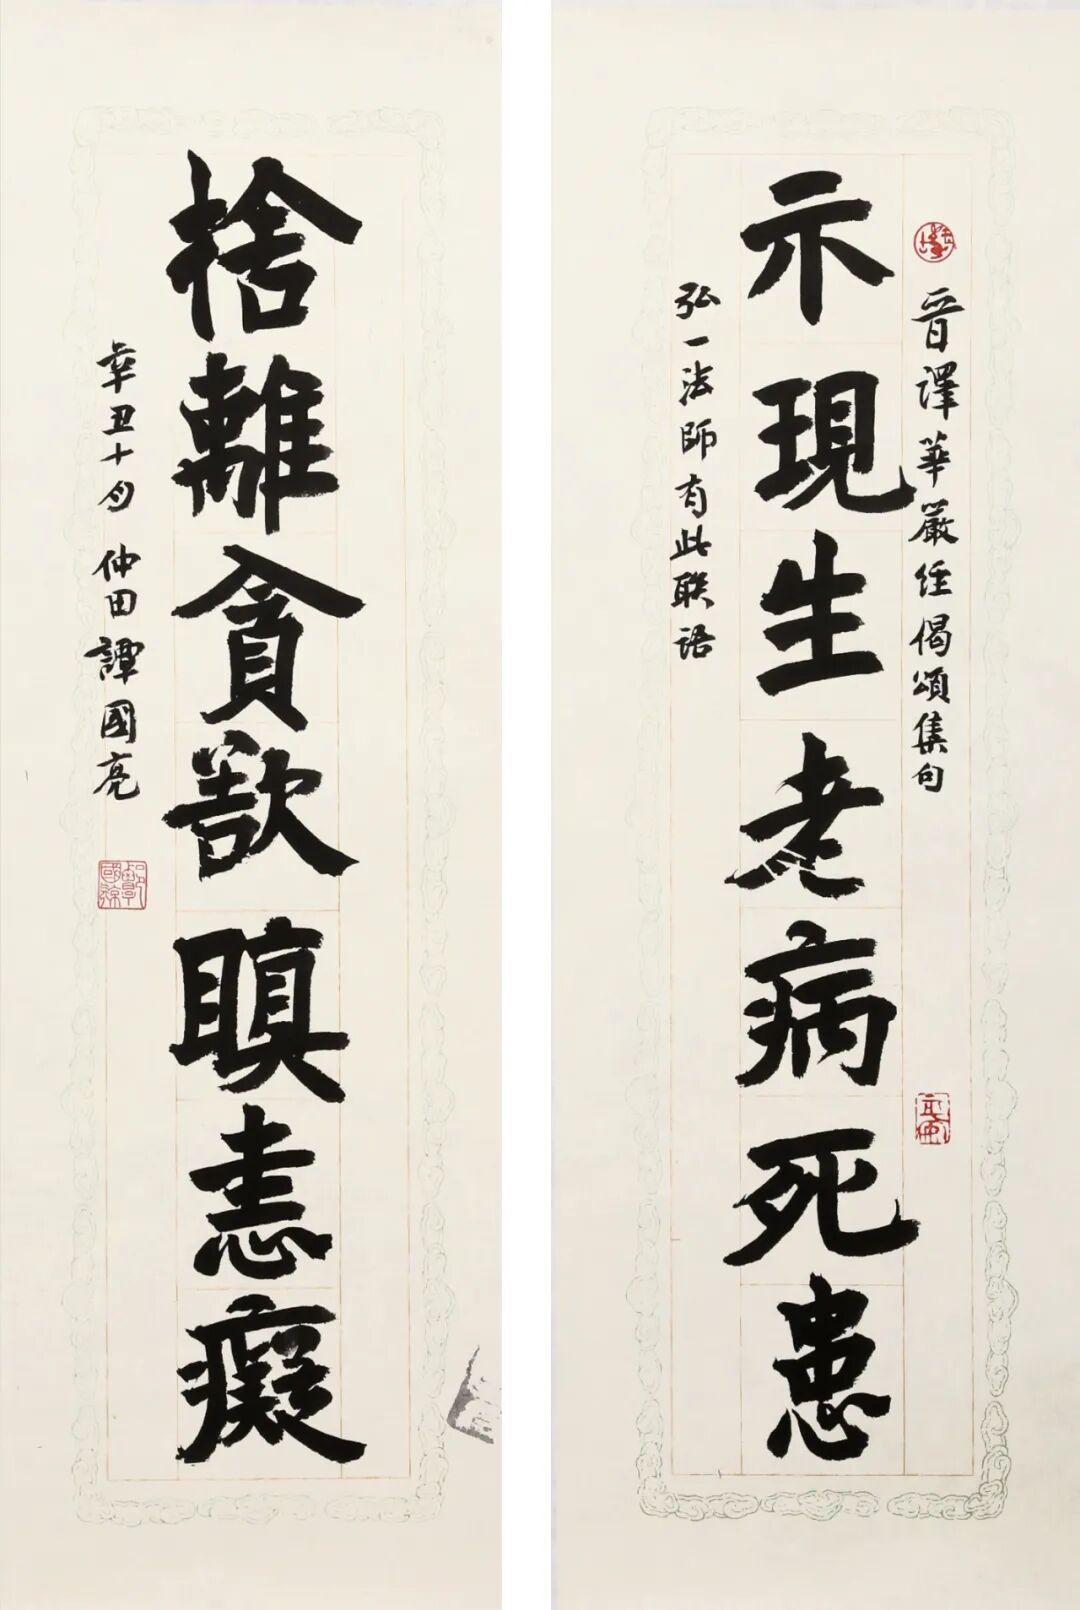 晋譯華嚴经偈頌集句
示現生老病死患
弘一法師有此联语
捨離貪欲瞋恚癡
辛丑十月 仲田譚國亮